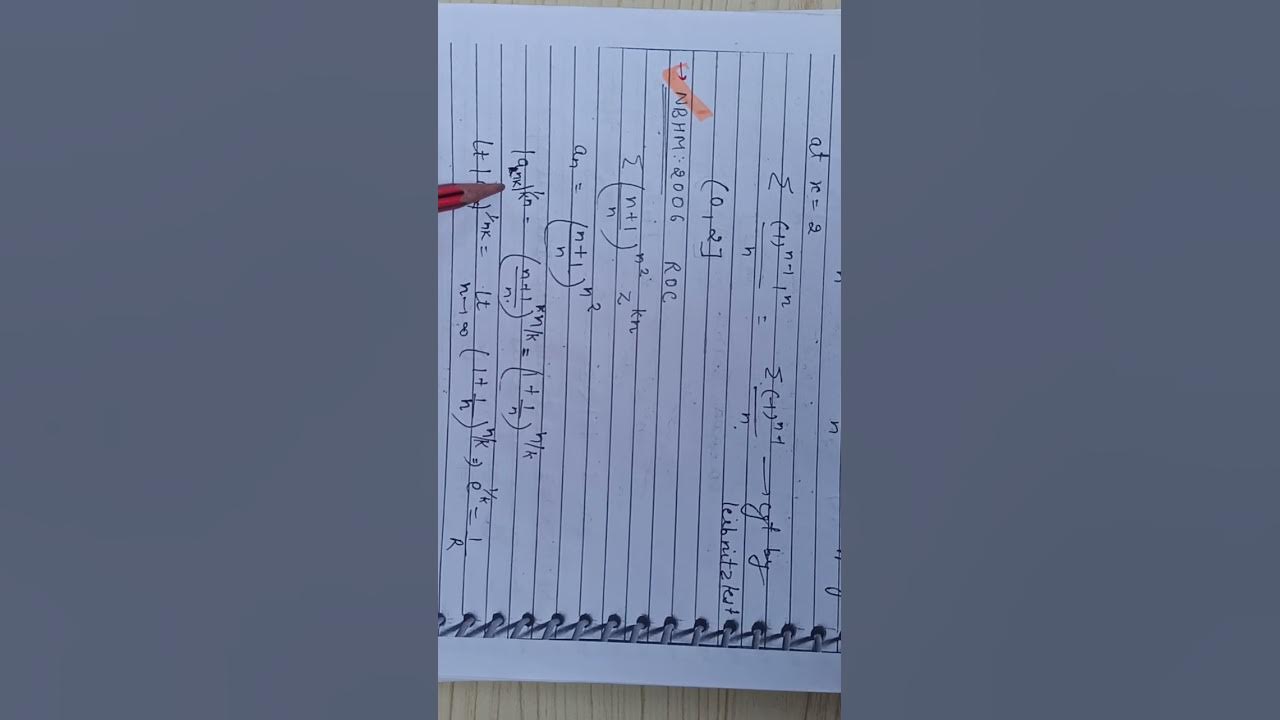 at x = 2
Σ (-1)^{n-1} 1^n / n = Σ (-1)^{n-1} / n → cgt by
leibnitz test
(0, 2]
→ NBHM: 2006 ROC
Σ ((n+1)/n)^{n²} z^{kn}
a_n = ((n+1)/n)^{n²}
|a_{nk}|^{1/kn} = ((n+1)/n)^{kn/k} = (1 + 1/n)^{n/k}
lt | |^{1/nk} = lt_{n→∞} (1 + 1/n)^{n/k} ⇒ e^{1/k} = 1/R